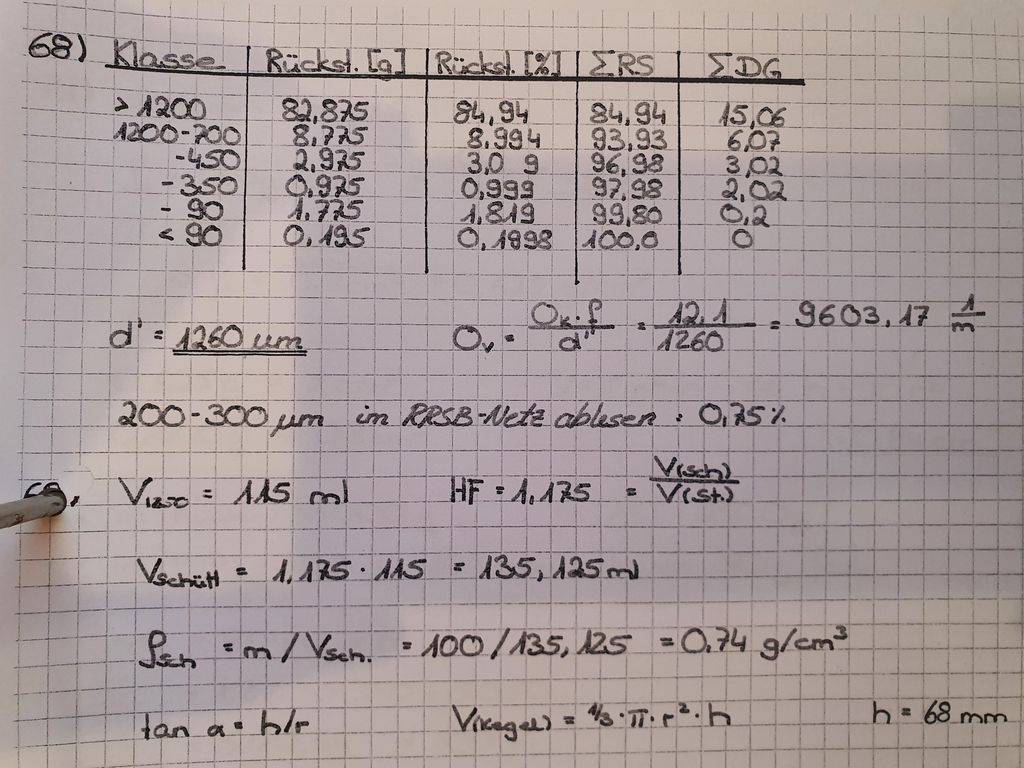 68) Klasse Rückst. [g] Rückst. [%] ΣRS ΣDG
> 1200 82,875 84,94 84,94 15,06
1200-700 8,775 8,994 93,93 6,07
-450 2,975 3,0 9 96,98 3,02
-350 0,975 0,999 97,98 2,02
- 90 1,775 1,819 99,80 0,2
< 90 0,195 0,1998 100,0 0
d' = 1260 um Oᵥ = Oₖ·f / d' = 12,1 / 1260 = 9603,17 1/m
200-300 µm im RRSB-Netz ablesen : 0,75%
V₁₂₅₀ = 115 ml HF = 1,175 = V(sch) / V(St.)
Vschütt = 1,175 · 115 = 135,125 ml
ρsch = m / Vsch. = 100 / 135,125 = 0,74 g/cm³
tan a = h/r V(Kegel) = 1/3 · π · r² · h h = 68 mm